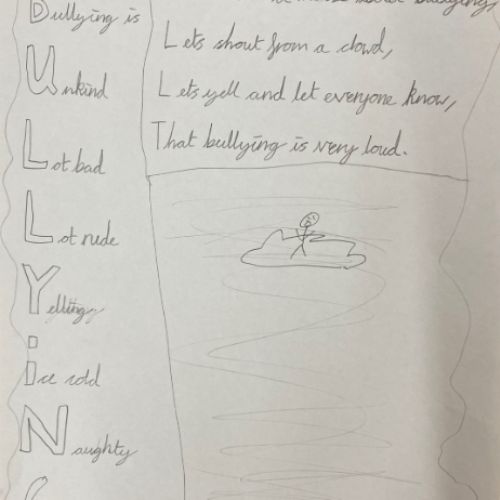 Bullying is
Unkind
Lot bad
Lot rude
Yelling
ice cold
Naughty
bullying,
Lets shout from a clowd,
Lets yell and let everyone know,
That bullying is very loud.